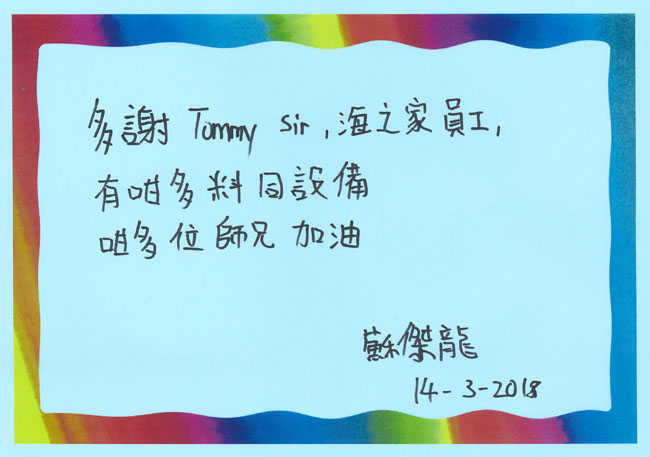 多謝 Tommy sir,海之家員工,
有咁多料同設備
咁多位師兄 加油
蘇傑龍
14-3-2018